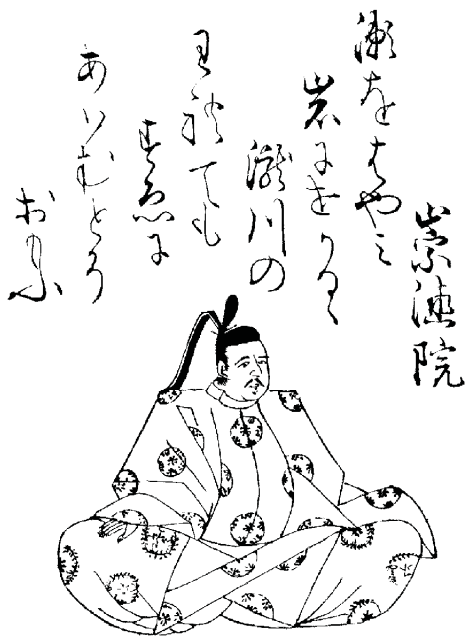 崇徳院
瀬をはやみ
岩にせかるゝ
瀧川の
われても
すゑに
あはむとそ
おもふ